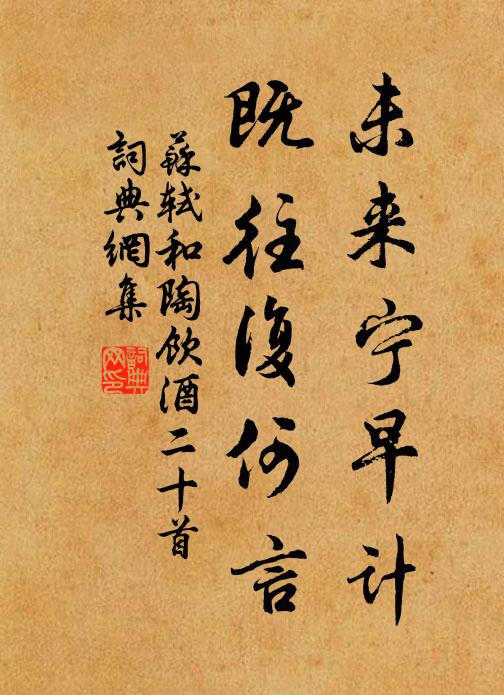 未来宁早计
既往復何言
蘇軾和陶飲酒二十首
詞典網集
詞典網印